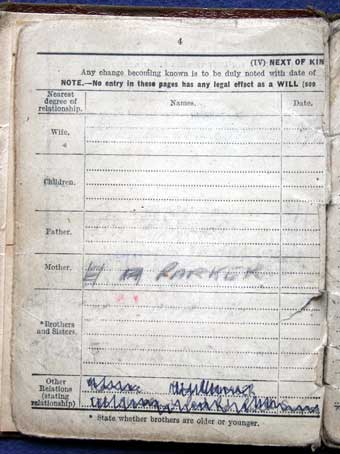 4
(IV) NEXT OF KIN
Any change becoming known is to be duly noted with date of
NOTE.—No entry in these pages has any legal effect as a WILL (see
Nearest degree of relationship.
Names.
Date.
Wife.
Children.
Father.
Mother. PARKER
*Brothers and Sisters.
Other Relations (stating relationship)
* State whether brothers are older or younger.